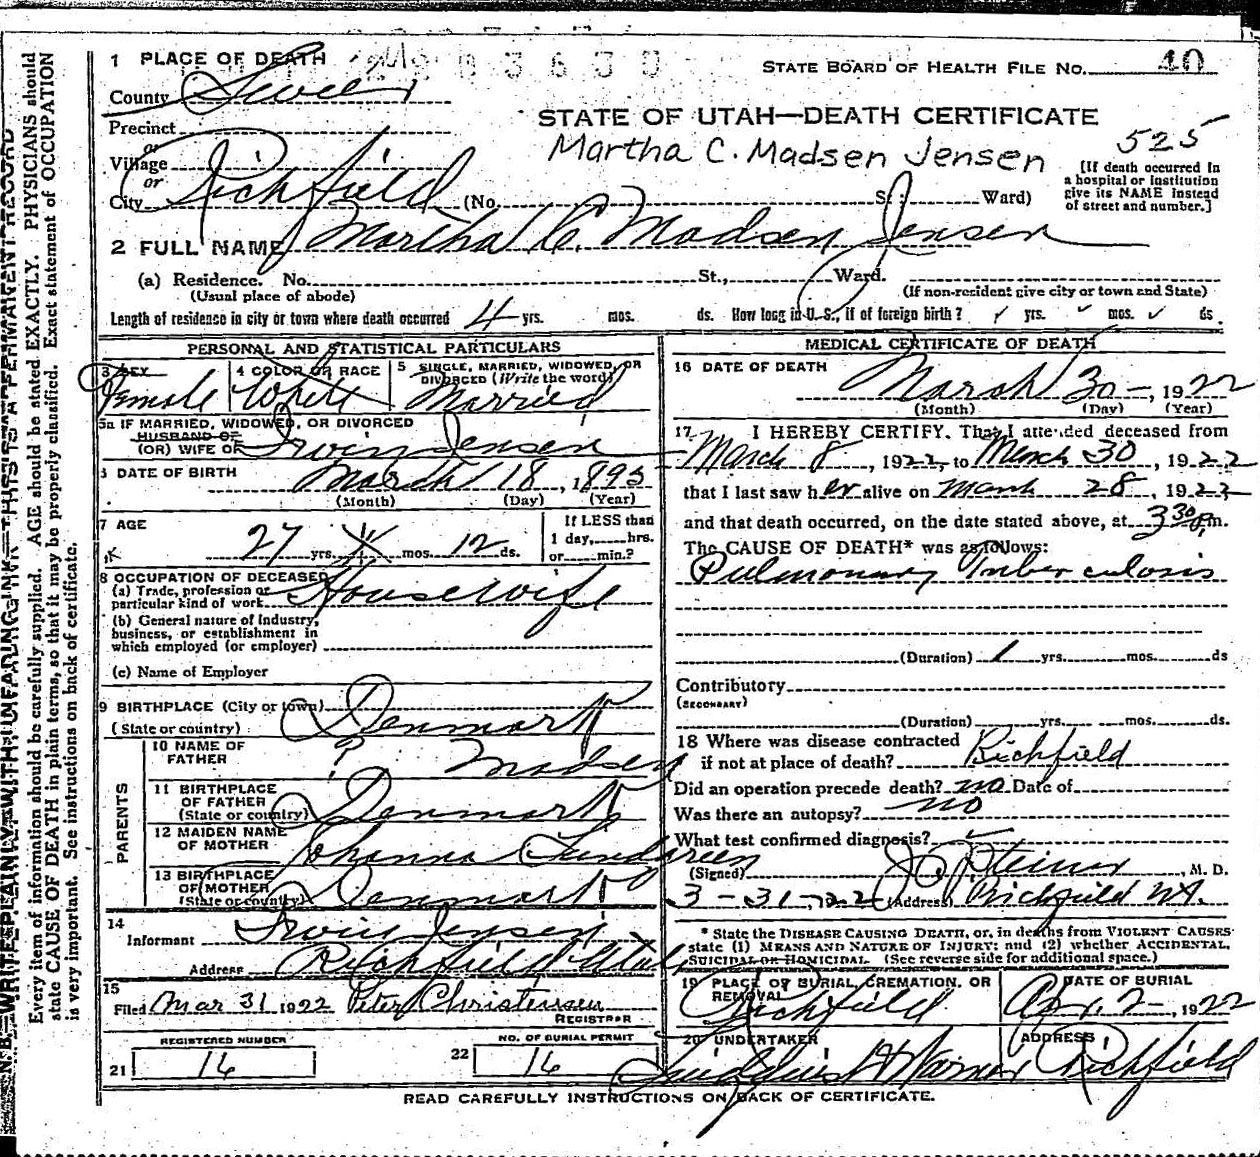 1 PLACE OF DEATH
STATE BOARD OF HEALTH FILE NO. 40
County Sevier
STATE OF UTAH—DEATH CERTIFICATE
Precinct
or
Martha C. Madsen Jensen 525
Village
or
[If death occurred in
a hospital or institution
give its NAME instead
of street and number.]
City Richfield (No. St.; Ward)
2 FULL NAME Martha C. Madsen Jensen
(a) Residence. No. St., Ward.
(Usual place of abode) (If non-resident give city or town and State)
Length of residence in city or town where death occurred 4 yrs. mos. ds. How long in U. S., if of foreign birth? yrs. mos. ds.
PERSONAL AND STATISTICAL PARTICULARS
3 SEX
Female
4 COLOR OR RACE
White
5 SINGLE, MARRIED, WIDOWED, OR
DIVORCED (Write the word)
Married
5a IF MARRIED, WIDOWED, OR DIVORCED
HUSBAND OF
(OR) WIFE OF Irvin Jensen
6 DATE OF BIRTH March 18, 1895
(Month) (Day) (Year)
7 AGE
27 yrs. mos. 12 ds.
If LESS than
1 day, hrs.
or min.?
8 OCCUPATION OF DECEASED
(a) Trade, profession or
particular kind of work Housewife
(b) General nature of Industry,
business, or establishment in
which employed (or employer)
(c) Name of Employer
9 BIRTHPLACE (City or town)
(State or country) Denmark
PARENTS
10 NAME OF
FATHER ? Madsen
11 BIRTHPLACE
OF FATHER
(State or country) Denmark
12 MAIDEN NAME
OF MOTHER Johanna Lundgreen
13 BIRTHPLACE
OF MOTHER
(State or country) Denmark
14
Informant Irvin Jensen
Address Richfield Utah
15
Filed Mar 31 1922 Peter Christensen
REGISTRAR
REGISTERED NUMBER
21 16
NO. OF BURIAL PERMIT
22 16
MEDICAL CERTIFICATE OF DEATH
16 DATE OF DEATH
March 30-, 1922
(Month) (Day) (Year)
17 I HEREBY CERTIFY, That I attended deceased from
March 8, 1922, to March 30, 1922
that I last saw her alive on March 28, 1922
and that death occurred, on the date stated above, at 3 30 P.m.
The CAUSE OF DEATH* was as follows:
Pulmonary Tuberculosis
(Duration) 1 yrs. mos. ds
Contributory
(SECONDARY)
(Duration) yrs. mos. ds.
18 Where was disease contracted
if not at place of death? Richfield
Did an operation precede death? no Date of
Was there an autopsy? no
What test confirmed diagnosis?
(Signed) J G Steiner, M. D.
3-31, 1922 (Address) Richfield Ut.
* State the DISEASE CAUSING DEATH, or, in deaths from VIOLENT CAUSES
state (1) MEANS AND NATURE OF INJURY; and (2) whether ACCIDENTAL,
SUICIDAL OR HOMICIDAL. (See reverse side for additional space.)
19 PLACE OF BURIAL, CREMATION, OR
REMOVAL
Richfield
DATE OF BURIAL
Apr. 2-, 1922
20 UNDERTAKER
ADDRESS
Warner Richfield
READ CAREFULLY INSTRUCTIONS ON BACK OF CERTIFICATE.
N. B.—WRITE PLAINLY, WITH UNFADING INK—THIS IS A PERMANENT RECORD
Every item of information should be carefully supplied. AGE should be stated EXACTLY. PHYSICIANS should
state CAUSE OF DEATH in plain terms, so that it may be properly classified. Exact statement of OCCUPATION
is very important. See instructions on back of certificate.